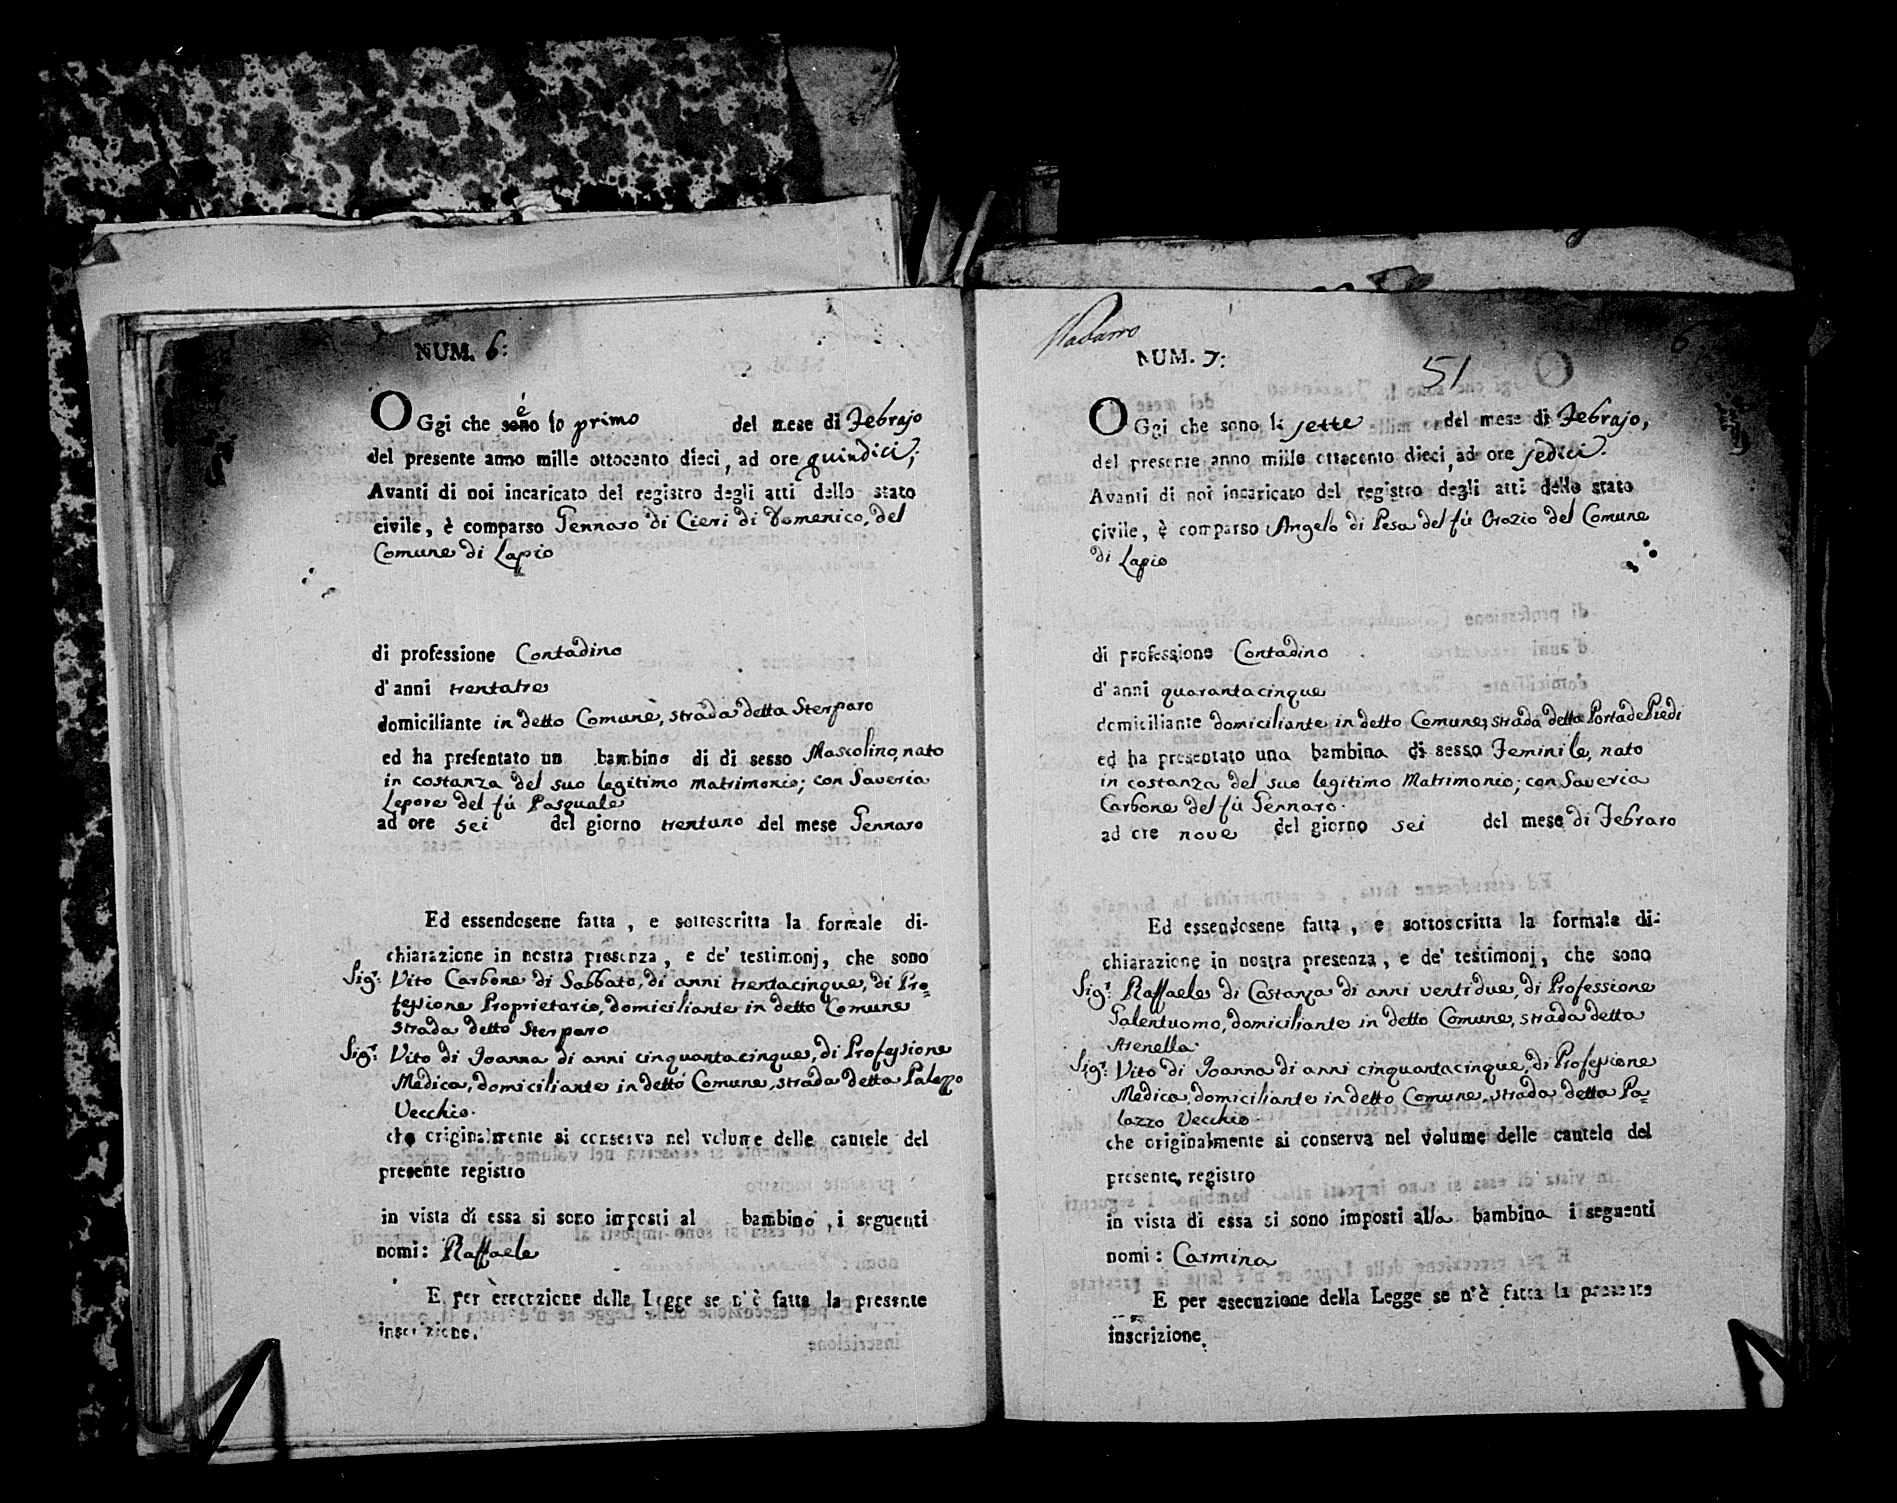 NUM. 6:
OGgi che sono è lo primo del mese di Febrajo
del presente anno mille ottocento dieci, ad ore quindici;
Avanti di noi incaricato del registro degli atti dello stato
civile, è comparso Gennaro di Cieri di Domenico, del
Comune di Lapio
di professione Contadino
d'anni trentatre
domiciliante in detto Comune, strada detta Sterparo
ed ha presentato un bambino di di sesso Mascolino, nato
in costanza del suo legitimo matrimonio; con Saveria
Lepore del fù Pasquale
ad ore sei del giorno trentuno del mese Gennaro
Ed essendosene fatta, e sottoscritta la formale di-
chiarazione in nostra presenza, e de' testimonj, che sono
Sigr. Vito Carbone di Sabbato, di anni trentacinque, di Pro=
fessione Proprietario, domiciliante in detto Comune
strada detto Sterparo
Sigr. Vito di Joanna di anni cinquantacinque, di Professione
Medica, domiciliante in detto Comune, strada detta Palazzo
Vecchio.
che originalmente si conserva nel volume delle cautele del
presente registro
in vista di essa si sono imposti al bambino, i seguenti
nomi: Raffaele
E per esecuzione della Legge se n'è fatta la presente
inscrizione.
NUM. 7:
51
6
OGgi che sono li sette del mese di Febrajo,
del presente anno mille ottocento dieci, ad ore sedici.
Avanti di noi incaricato del registro degli atti dello stato
civile, è comparso Angelo di Pesa del fù Orazio del Comune
di Lapio
di professione Contadino
d'anni quarantacinque
domiciliante domiciliante in detto Comune, strada detta Porta de Piedi
ed ha presentato una bambina di sesso Feminile, nato
in costanza del suo legitimo Matrimonio; con Saveria
Carbone del fù Gennaro.
ad ore nove del giorno sei del mese di Febraro
Ed essendosene fatta, e sottoscritta la formale di-
chiarazione in nostra presenza, e de' testimonj, che sono
Sigr. Raffaele di Costanza di anni ventidue, di Professione
Galentuomo, domiciliante in detto Comune, strada detta
Arenella.
Sigr. Vito di Joanna di anni cinquantacinque, di Professione
Medica, domiciliante in detto Comune, strada detta Pa=
lazzo Vecchio.
che originalmente si conserva nel volume delle cautele del
presente registro
in vista di essa si sono imposti alla bambina i seguenti
nomi: Carmina
E per esecuzione della Legge se n'è fatta la presente
inscrizione.